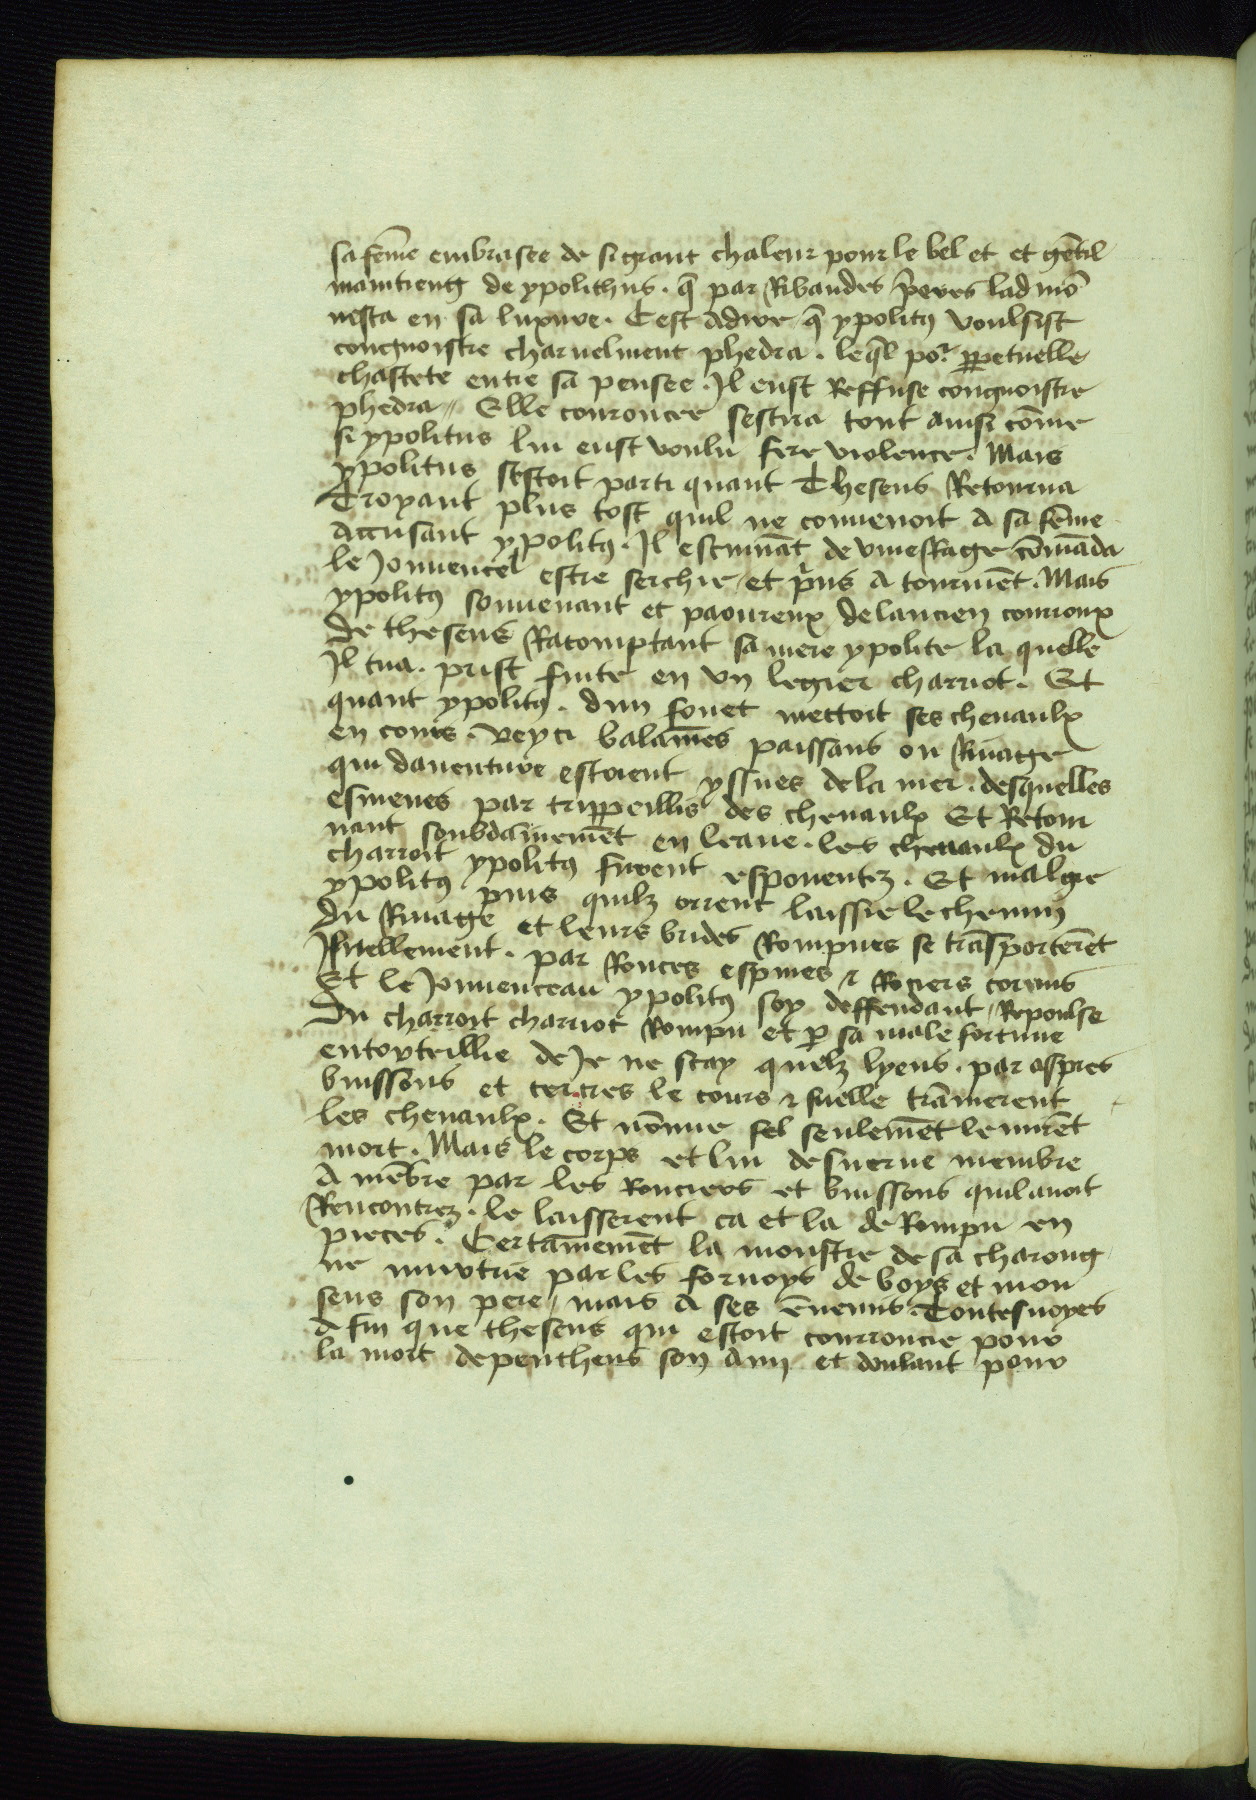 sa fēme embrasee de si grant chaleur pour le bel et et gētil
maintieng de ypolithus . q̄ par Ribaudes p̄eres ladmō
nesta en sa luxure . Cest adire q̄ ypolitꝰ voulsist
congnoistre charnelment phedra . leq̄l poᵣ ꝑpetuelle
chastete entre sa pensee . Il eust Reffuse congnoistre
phedra // Elle couroucee sestria tout ainsi cōme
si ypolitus lui eust voulu fere violence . Mais
ypolitus sestoit parti quant Theseus Retourna
Croyant plus tost quil ne conuenoit A sa fēme
Accusant ypolitꝰ . Il de cōmāda
le Jouuencel estre serchie et p̄ns a tourmēt . Mais
ypolitꝰ souuenant et paoureux delancien courroux
De theseus Racomptant sa mere ypolite la quelle
Il tua . prist fuite en vn legier charriot . Et
quant ypolitꝰ . dun fouet mettoit ses cheuaulx
en cours . veyci balaines paissans ou Riuage
qui dauenture estoient yssues de la mer . desquelles
esmeues par des cheuaulx Et Retour
nant soubdainemēt en leaue . les cheuaulx du
charroit ypolitꝰ furent espouentez . Et malgre
ypolitꝰ puis quilz orrent laissie le chemin
du Riuage et leurs brides Rompues se trāsporterēt
Isnellement . par Ronces espines ⁊ Rociers corans
Et le Jouuenceau ypolitꝰ soy deffendant Repoulse
Du charroit charriot Rompu et ꝑ sa male fortune
de Je ne scay quelz lyens . par aspres
buissons et tertres le cours ⁊ trāinerent
les cheuaulx . Et nōmie fel seulemēt le mirēt
mort . Mais le corps et lui membre
A mēbre par les Ronciers et buissons quil auoit
Rencontrez . le laisserent ca et la de Rompu en
pieces . Certainemēt la monstre de sa charong
ne murtrie par les foruoys de boys et mon
sens son pere // mais A ses ēnemis . Toutesuoyes
A fin que theseus qui estoit courroucie pour
la mort de pentheus son Ami et doulant pour